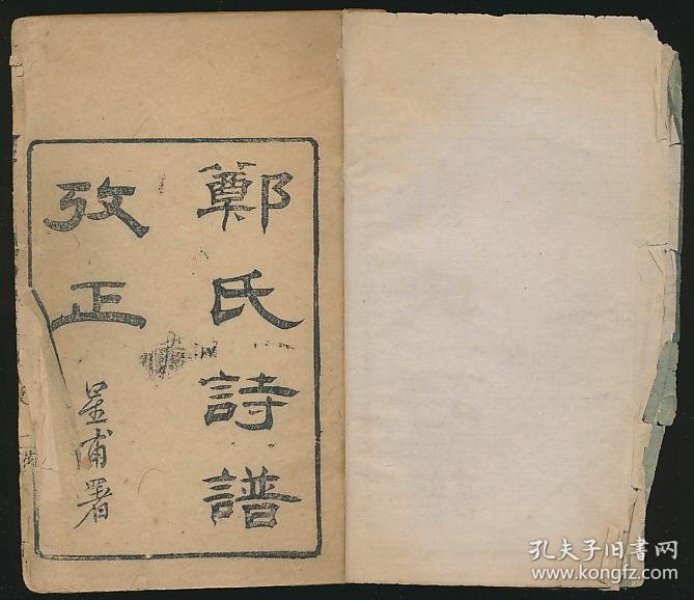 鄭氏詩譜
攷正
星浦署
孔夫子旧书网
www.kongfz.com